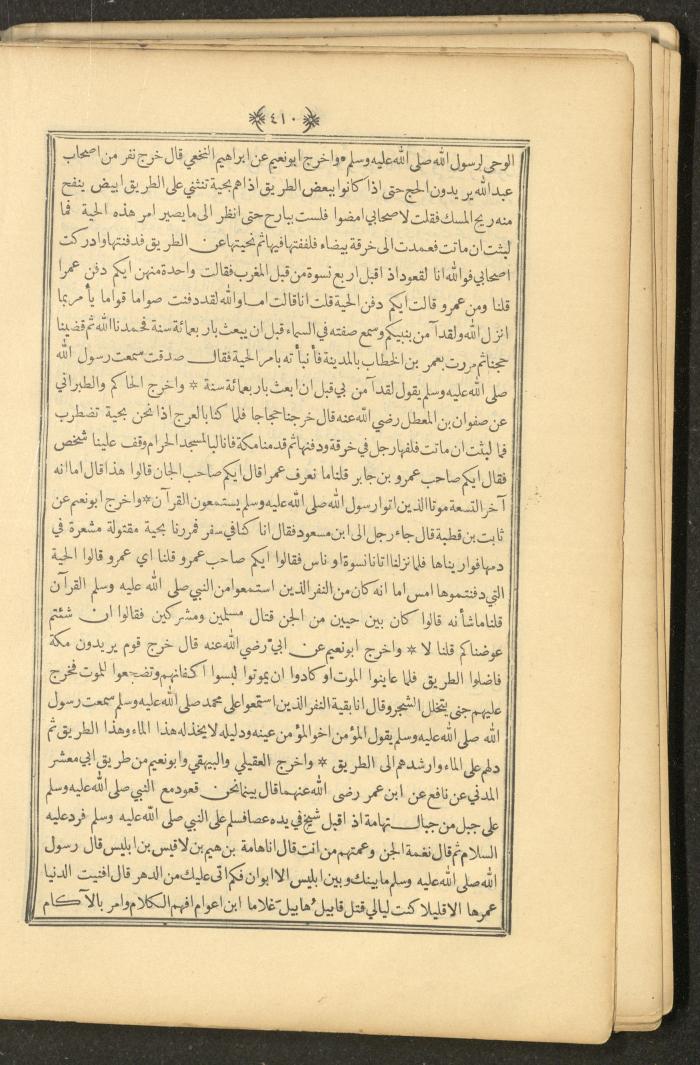 ٤١٠
الوحى لرسول الله صلى الله عليه وسلم * واخرج ابو نعيم عن ابراهيم النخعي قال خرج نفر من اصحاب
عبد الله يريدون الحج حتى اذا كانوا ببعض الطريق اذا هم بحية تنثني على الطريق ابيض ينفح
منه ريح المسك فقلت لاصحابي امضوا فلست ببارح حتى انظر الى ما يصير امر هذه الحية فما
لبثت ان ماتت فعمدت الى خرقة بيضاء فلففتها فيها ثم نحيتها عن الطريق فدفنتها وادركت
اصحابي فوالله انا لقعود اذ اقبل اربع نسوة من قبل المغرب فقالت واحدة منهن ايكم دفن عمرا
قلنا ومن عمرو قالت ايكم دفن الحية قلت انا قالت اما والله لقد دفنت صواما قواما يأمر بما
انزل الله ولقد آمن بنبيكم وسمع صفته في السماء قبل ان يبعث باربعمائة سنة فحمدنا الله ثم قضينا
حجنا ثم مررت بعمر بن الخطاب بالمدينة فأنبأته بامر الحية فقال صدقت سمعت رسول الله
صلى الله عليه وسلم يقول لقد آمن بي قبل ان ابعث باربعمائة سنة * واخرج الحاكم والطبراني
عن صفوان بن المعطل رضي الله عنه قال خرجنا حجاجا فلما كنا بالعرج اذا نحن بحية تضطرب
فما لبثت ان ماتت فلفها رجل في خرقة ودفنها ثم قدمنا مكة فانا لبالمسجد الحرام وقف علينا شخص
فقال ايكم صاحب عمرو بن جابر قلنا ما نعرف عمرا قال ايكم صاحب الجان قالوا هذا قال اما انه
آخر التسعة موتا الذين اتوا رسول الله صلى الله عليه وسلم يستمعون القرآن * واخرج ابو نعيم عن
ثابت بن قطبة قال جاء رجل الى ابن مسعود فقال انا كنا في سفر فمررنا بحية مقتولة مشعرة في
دمها فواريناها فلما نزلنا اتانا نسوة او ناس فقالوا ايكم صاحب عمرو قلنا اي عمرو قالوا الحية
التي دفنتموها امس اما انه كان من النفر الذين استمعوا من النبي صلى الله عليه وسلم القرآن
قلنا ما شأنه قالوا كان بين حيين من الجن قتال مسلمين ومشركين فقالوا ان شئتم
عوضناكم قلنا لا * واخرج ابو نعيم عن ابيّ رضي الله عنه قال خرج قوم يريدون مكة
فاضلوا الطريق فلما عاينوا الموت او كادوا ان يموتوا لبسوا اكفانهم وتضجعوا للموت فخرج
عليهم جنى يتخلل الشجر وقال انا بقية النفر الذين استمعوا على محمد صلى الله عليه وسلم سمعت رسول
الله صلى الله عليه وسلم يقول المؤمن اخو المؤمن عينه ودليله لا يخذله هذا الماء وهذا الطريق ثم
دلهم على الماء وارشدهم الى الطريق * واخرج العقيلي والبيهقي وابو نعيم من طريق ابي معشر
المدني عن نافع عن ابن عمر رضى الله عنهما قال بينما نحن قعود مع النبي صلى الله عليه وسلم
على جبل من جبال تهامة اذ اقبل شيخ في يده عصا فسلم على النبي صلى الله عليه وسلم فرد عليه
السلام ثم قال نغمة الجن وغمتهم من انت قال انا هامة بن هيم بن لاقيس بن ابليس قال رسول
الله صلى الله عليه وسلم ما بينك وبين ابليس الا ابوان فكم اتى عليك من الدهر قال افنيت الدنيا
عمرها الا قليلا كنت ليالي قتل قابيل هابيل غلاما ابن اعوام افهم الكلام وامر بالآكام